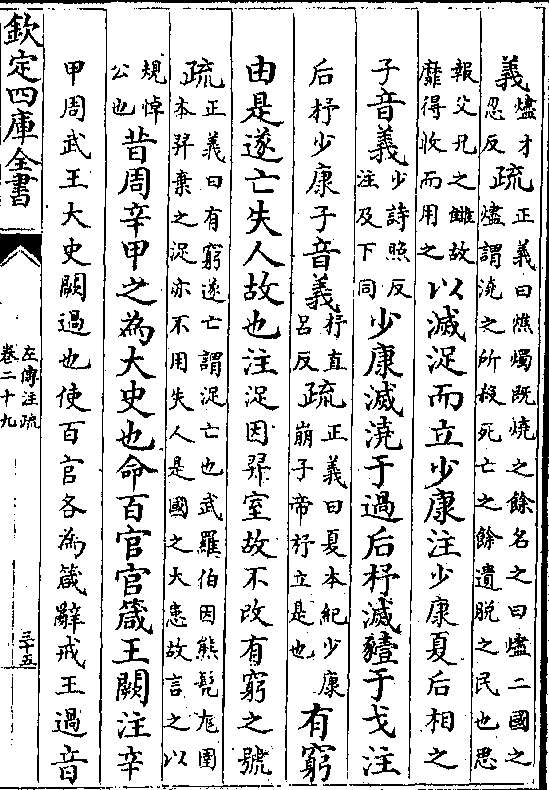 義燼才忍反疏正義曰燋燭既燒之餘名之曰燼二國之燼謂澆之所殺死亡之餘遺脫之民也思
報父兄之讎故靡得收而用之以滅浞而立少康注少康夏后相之
子音義少詩照反注及下同少康滅澆于過后杼滅豷于戈注
后杼少康子音義杼直呂反疏正義曰夏本紀少康崩子帝杼立是也有窮
由是遂亡失人故也注浞因羿室故不改有窮之號
疏正義曰有窮遂亡謂浞亡也武羅伯因熊髠尨圉本羿棄之浞亦不用失人是國之大患故言之以
規悼公也昔周辛甲之為大史也命百官官箴王闕注辛
甲周武王大史闕過也使百官各為箴辭戒王過音
欽定四庫全書
左傳注疏
卷二十九
三十五